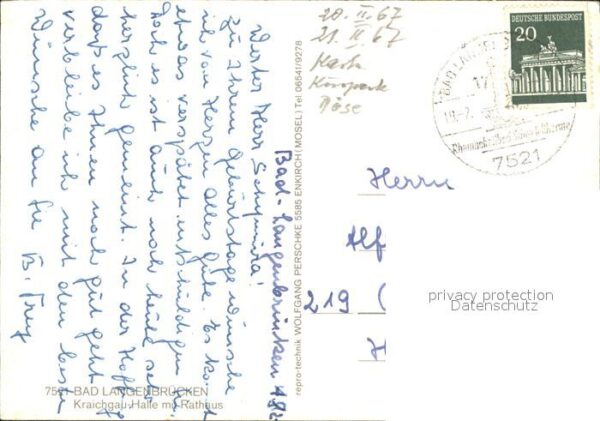 Bad-Langenbrücken
Werter Herr Schmida!
Zu Ihrem Geburtstage wünsche
ich von Herzen alles Gute. Es kommt
etwas verspätet entschuldigen Sie
doch es ist auch noch heute sehr
herzlich gemeint. In der Hoffg
daß es Ihnen noch gut geht
verbleibe ich mit den besten
Wünsche an Sie B. Frey
7521 BAD LANGENBRÜCKEN
Kraichgau-Halle mit Rathaus
repro-technik WOLFGANG PERSCHKE 5585 ENKIRCH (MOSEL) Tel. 06541/9278
20. II. 67
21. II. 67
Karte
DEUTSCHE BUNDESPOST
20
BAD LANGEN
7521
Herrn
Alf
219 (
privacy protection
Datenschutz